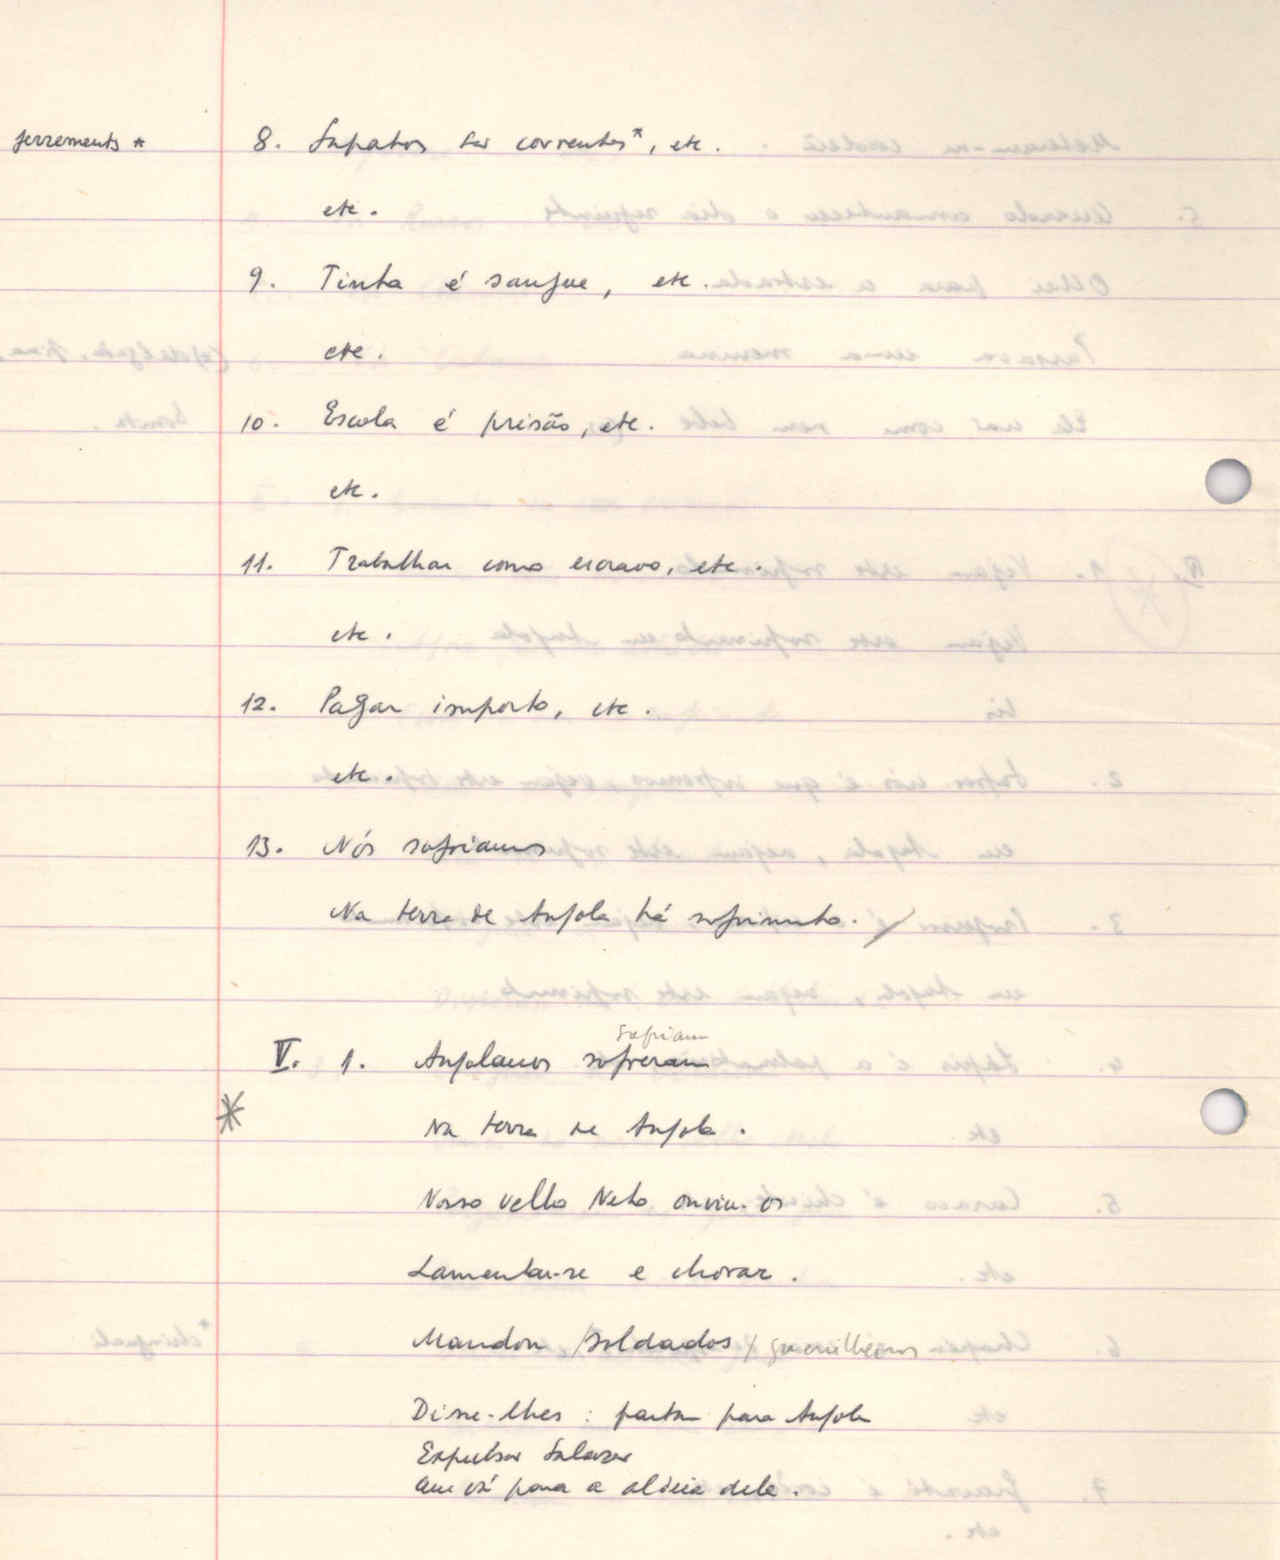 ferrements *
8. Sapatos ser correntes*, etc.
etc.
9. Tinta é sangue, etc.
etc.
10. Escola é prisão, etc.
etc.
11. Trabalhar como escravo, etc.
etc.
12. Pagar imposto, etc.
etc.
13. Nós sofriamos
Na terra de Angola há sofrimento.
sofriam
V. 1. Angolanos sofreram
*
Na terra de Angola.
Nosso velho Neto ouviu-os
Lamentar-se e chorar.
Mandou /soldados / guerrilheiros
Disse-lhes: partam para Angola
Expulsar Salazar
Que vá para a aldeia dele.